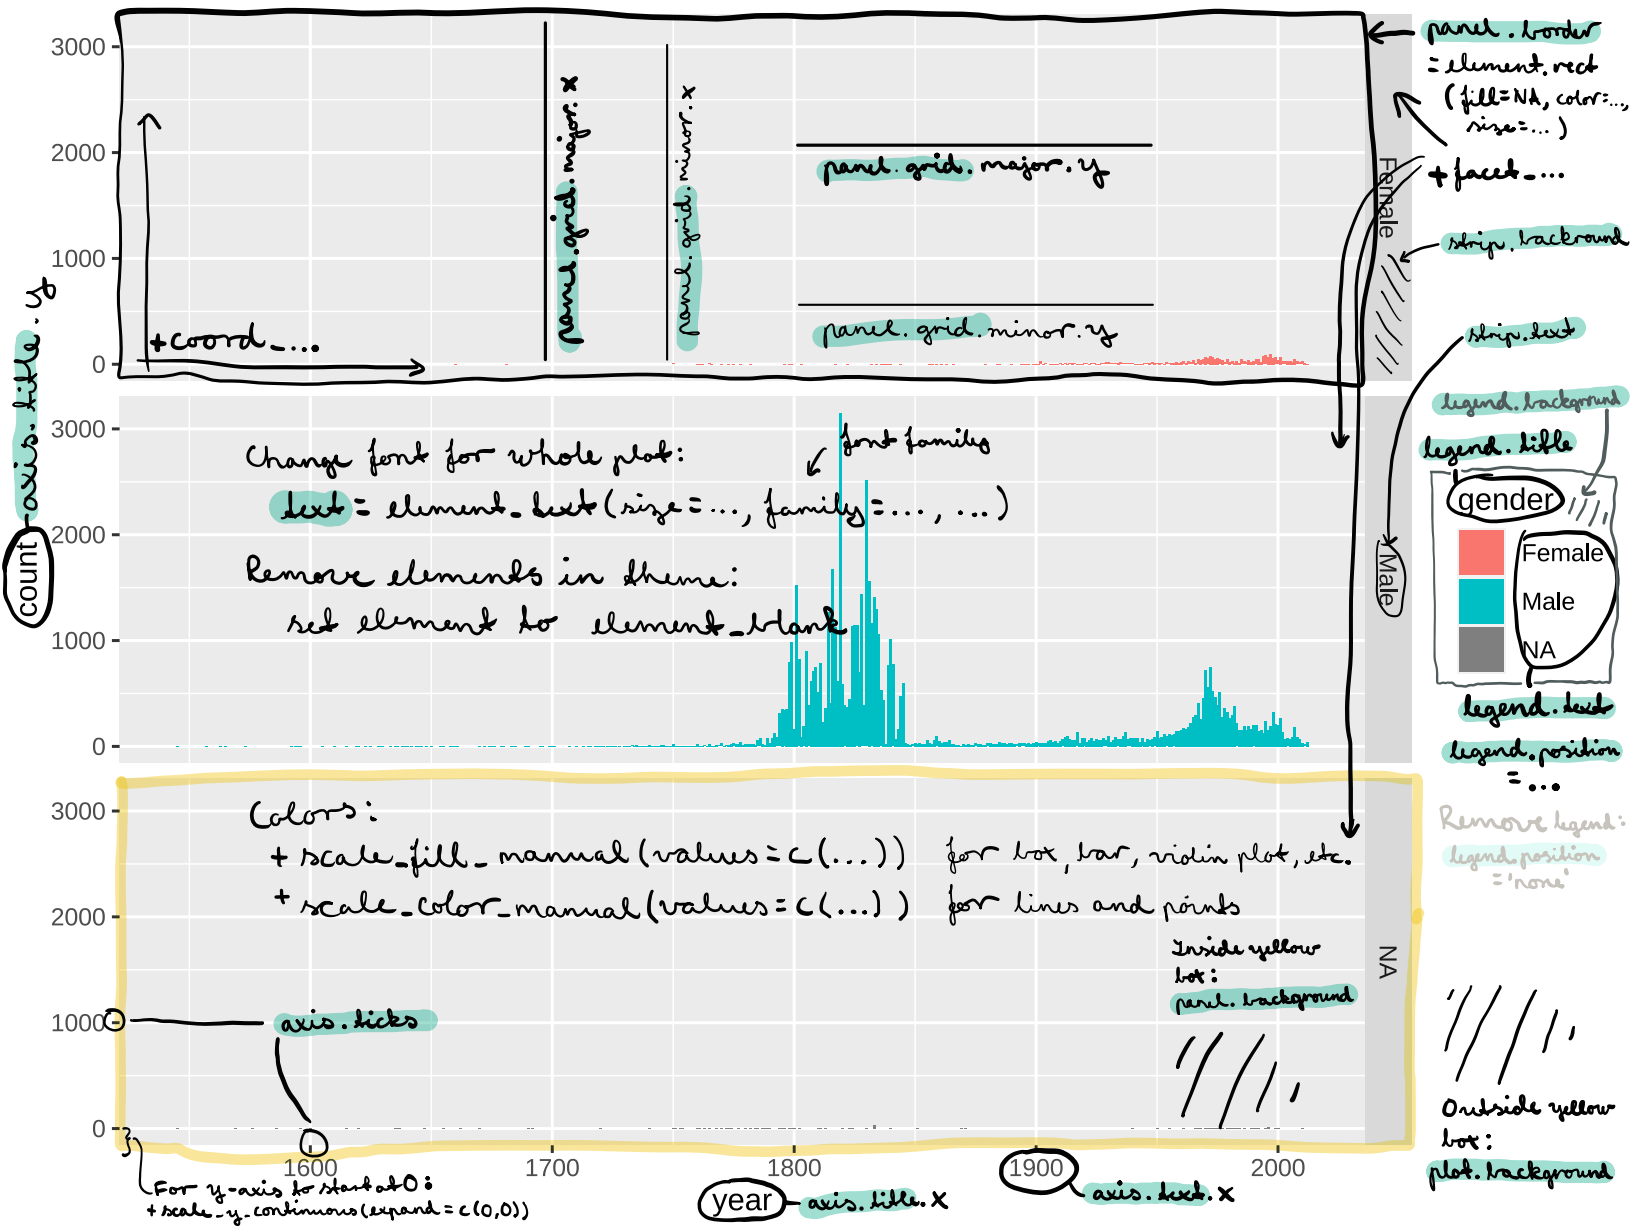 3000
2000
1000
0
panel.grid.major.x
panel.grid.minor.x
panel.grid.major.y
panel.grid.minor.y
+coord_...
Female
panel.border
= element.rect
(fill=NA, color=...,
size=...)
+ facet_...
strip.backround
strip.text
axis.title.y
count
3000
2000
1000
0
Change font for whole plot:
font family
text = element_text(size=..., family=..., ...)
Remove elements in theme:
set element to element_blank
Male
legend.background
legend.title
gender
Female
Male
NA
legend.text
legend.position
=...
Remove legend:
legend.position
='none'
3000
2000
1000
0
Colors:
+ scale_fill_manual(values=c(...)) for box, bar, violin plot, etc.
+ scale_color_manual(values=c(...)) for lines and points
Inside yellow
box:
panel.background
NA
axis.ticks
Outside yellow
box:
plot.background
1600
1700
1800
1900
2000
For y-axis to start at 0:
+scale_y_continuous(expand=c(0,0))
year
axis.title.x
axis.text.x